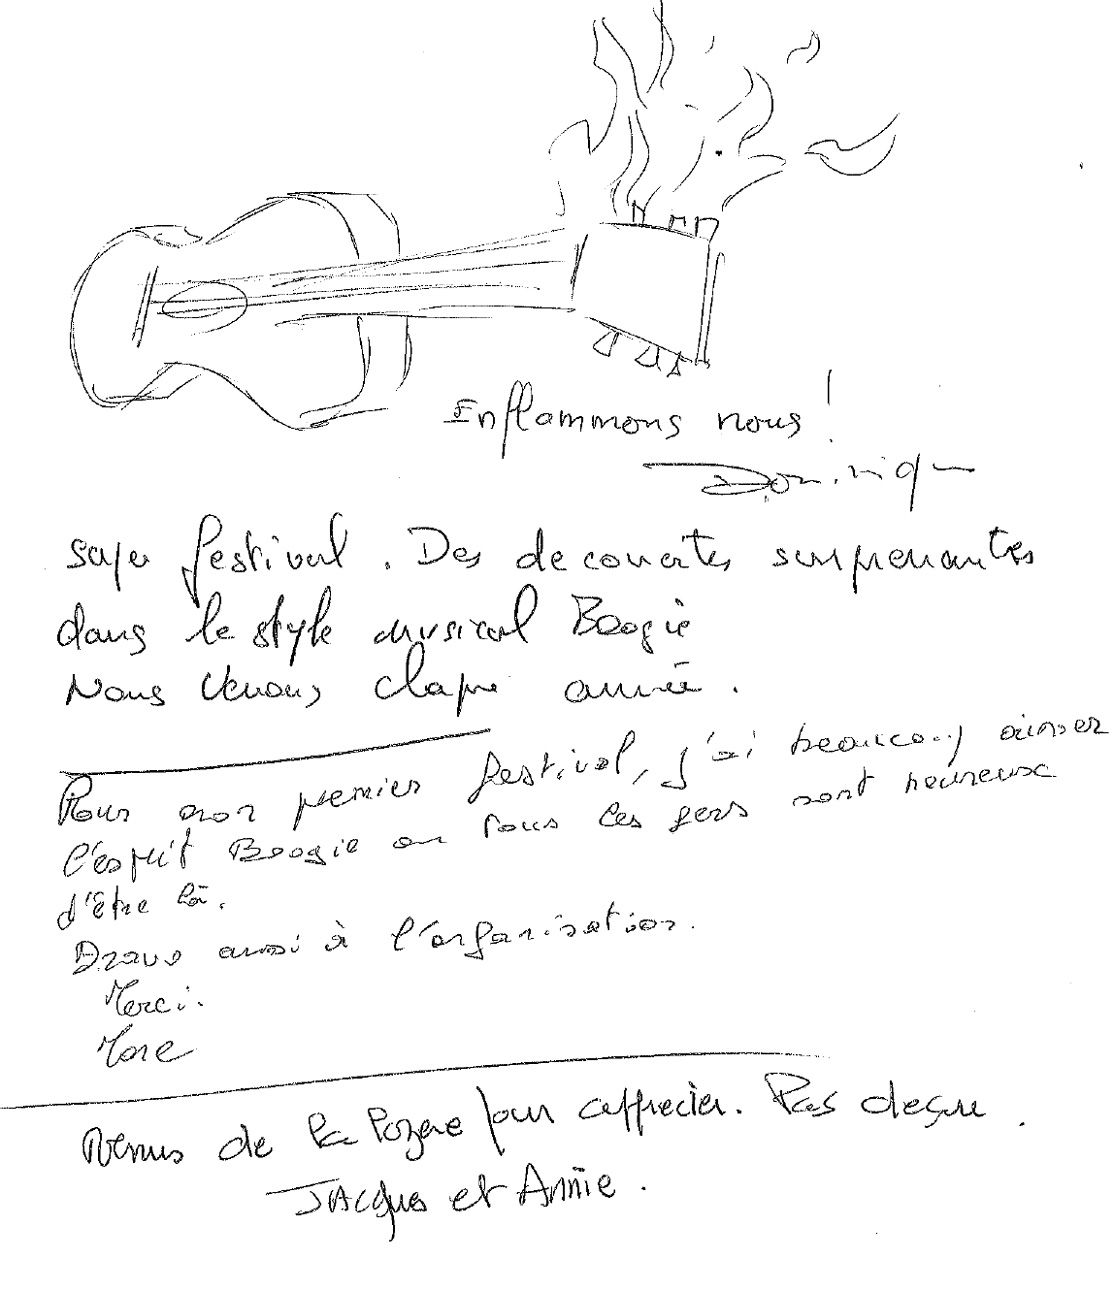 Enflammons nous !
Dominique
super festival. Des decouvertes surprenantes
dans le style musical Boogie
Nous venons chaque année.
Pour mon premier festival, j'ai beaucoup aimer
l'esprit Boogie ou tous les gens sont heureux
d'être là.
Bravo aussi à l'organisation.
Merci.
Marc
Venus de la lozere pour apprecier. Pas deçu.
JAcques et Annie.